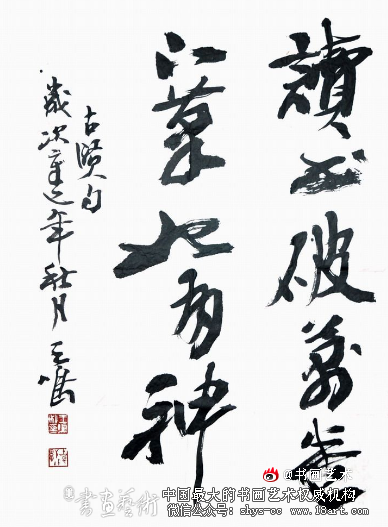 讀书破萬卷
下筆如有神
古賢句
歲次辛巳年秋月 王
@书画艺术
書画藝術
中国最大的书画艺术权威机构
微信公众号: www.18art.com